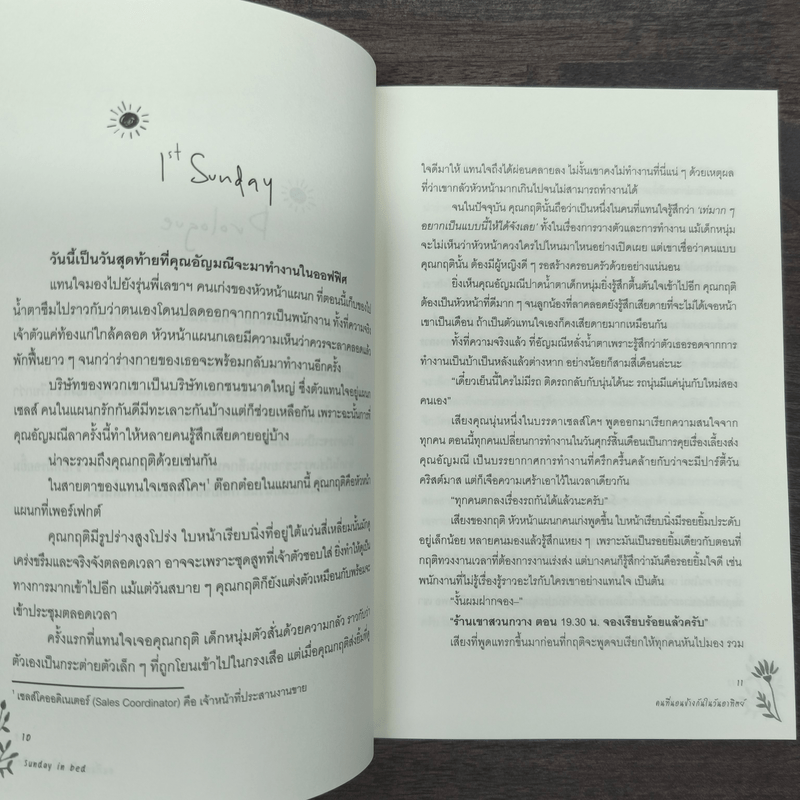 1st Sunday
วันนี้เป็นวันสุดท้ายที่คุณอัญมณีจะมาทำงานในออฟฟิศ
แทนใจมองไปยังรุ่นพี่เลขาฯ คนเก่งของหัวหน้าแผนก ที่ตอนนี้เก็บของไป
น้ำตาซึมไปราวกับว่าตนเองโดนปลดออกจากการเป็นพนักงาน ทั้งที่ความจริง
เจ้าตัวแค่ท้องแก่ใกล้คลอด หัวหน้าแผนกเลยมีความเห็นว่าควรจะลาคลอดแล้ว
พักฟื้นยาว ๆ จนกว่าร่างกายของเธอจะพร้อมกลับมาทำงานอีกครั้ง
บริษัทของพวกเขาเป็นบริษัทเอกชนขนาดใหญ่ ซึ่งตัวแทนใจอยู่แผนก
เซลส์ คนในแผนกรักกันดีมีทะเลาะกันบ้างแต่ก็ช่วยเหลือกัน เพราะฉะนั้นการที่
คุณอัญมณีลาครั้งนี้ทำให้หลายคนรู้สึกเสียดายอยู่บ้าง
น่าจะรวมถึงคุณกฤติด้วยเช่นกัน
ในสายตาของแทนใจเซลส์โคฯ¹ ต๊อกต๋อยในแผนกนี้ คุณกฤติคือหัวหน้า
แผนกที่เพอร์เฟกต์
คุณกฤติมีรูปร่างสูงโปร่ง ใบหน้าเรียบนิ่งที่อยู่ใต้แว่นสี่เหลี่ยมนั้นมักดู
เคร่งขรึมและจริงจังตลอดเวลา อาจจะเพราะชุดสูทที่เจ้าตัวชอบใส่ ยิ่งทำให้ดูเป็น
ทางการมากเข้าไปอีก แม้แต่วันสบาย ๆ คุณกฤติก็ยังแต่งตัวเหมือนกับพร้อมจะ
เข้าประชุมตลอดเวลา
ครั้งแรกที่แทนใจเจอคุณกฤติ เด็กหนุ่มตัวสั่นด้วยความกลัว ราวกับว่า
ตัวเองเป็นกระต่ายตัวเล็ก ๆ ที่ถูกโยนเข้าไปในกรงเสือ แต่เมื่อคุณกฤติส่งยิ้มที่ดู
¹ เซลส์โคออดิเนเตอร์ (Sales Coordinator) คือ เจ้าหน้าที่ประสานงานขาย
10
Sunday in bed
ใจดีมาให้ แทนใจถึงได้ผ่อนคลายลง ไม่งั้นเขาคงไม่ทำงานที่นี่แน่ ๆ ด้วยเหตุผล
ที่ว่าเขากลัวหัวหน้ามากเกินไปจนไม่สามารถทำงานได้
จนในปัจจุบัน คุณกฤตินั้นถือว่าเป็นหนึ่งในคนที่แทนใจรู้สึกว่า ‘เท่มาก ๆ
อยากเป็นแบบนี้ให้ได้จังเลย’ ทั้งในเรื่องการวางตัวและการทำงาน แม้เด็กหนุ่ม
จะไม่เห็นว่าหัวหน้าควงใครไปไหนมาไหนอย่างเปิดเผย แต่เขาเชื่อว่าคนแบบ
คุณกฤตินั้น ต้องมีผู้หญิงดี ๆ รอสร้างครอบครัวด้วยอย่างแน่นอน
ยิ่งเห็นคุณอัญมณีปาดน้ำตาเด็กหนุ่มยิ่งรู้สึกตื้นตันใจเข้าไปอีก คุณกฤติ
ต้องเป็นหัวหน้าที่ดีมาก ๆ จนลูกน้องที่ลาคลอดยังรู้สึกเสียดายที่จะไม่ได้เจอหน้า
เขาเป็นเดือน ถ้าเป็นตัวแทนใจเองก็คงเสียดายมากเหมือนกัน
ทั้งที่ความจริงแล้ว ที่อัญมณีหลั่งน้ำตาเพราะรู้สึกว่าตัวเธอรอดจากการ
ทำงานเป็นบ้าเป็นหลังแล้วต่างหาก อย่างน้อยก็สามสี่เดือนล่ะนะ
“เดี๋ยวเย็นนี้ใครไม่มีรถ ติดรถกลับกับนุ่นได้นะ รถนุ่นมีแค่นุ่นกับใหม่สอง
คนเอง”
เสียงคุณนุ่นหนึ่งในบรรดาเซลส์โคฯ พูดออกมาเรียกความสนใจจาก
ทุกคน ตอนนี้ทุกคนเปลี่ยนการทำงานในวันศุกร์สิ้นเดือนเป็นการคุยเรื่องเลี้ยงส่ง
คุณอัญมณี เป็นบรรยากาศการทำงานที่ครึกครื้นคล้ายกับว่าจะมีปาร์ตี้วัน
คริสต์มาส แต่ก็เจือความเศร้าเอาไว้ในเวลาเดียวกัน
“ทุกคนตกลงเรื่องรถกันได้แล้วนะครับ”
เสียงของกฤติ หัวหน้าแผนกคนเก่งพูดขึ้น ใบหน้าเรียบนิ่งมีรอยยิ้มประดับ
อยู่เล็กน้อย หลายคนมองแล้วรู้สึกแหยง ๆ เพราะมันเป็นรอยยิ้มเดียวกับตอนที่
กฤติทวงงานเวลาที่ต้องการงานเร่งส่ง แต่บางคนก็รู้สึกว่ามันคือรอยยิ้มใจดี เช่น
พนักงานที่ไม่รู้เรื่องรู้ราวอะไรกับใครเขาอย่างแทนใจ เป็นต้น
“งั้นผมฝากจอง–”
“ร้านเขาสวนกวาง ตอน 19.30 น. จองเรียบร้อยแล้วครับ”
เสียงที่พูดแทรกขึ้นมาก่อนที่กฤติจะพูดจบเรียกให้ทุกคนหันไปมอง รวม
11
คนที่นอนข้างกันในวันอาทิตย์